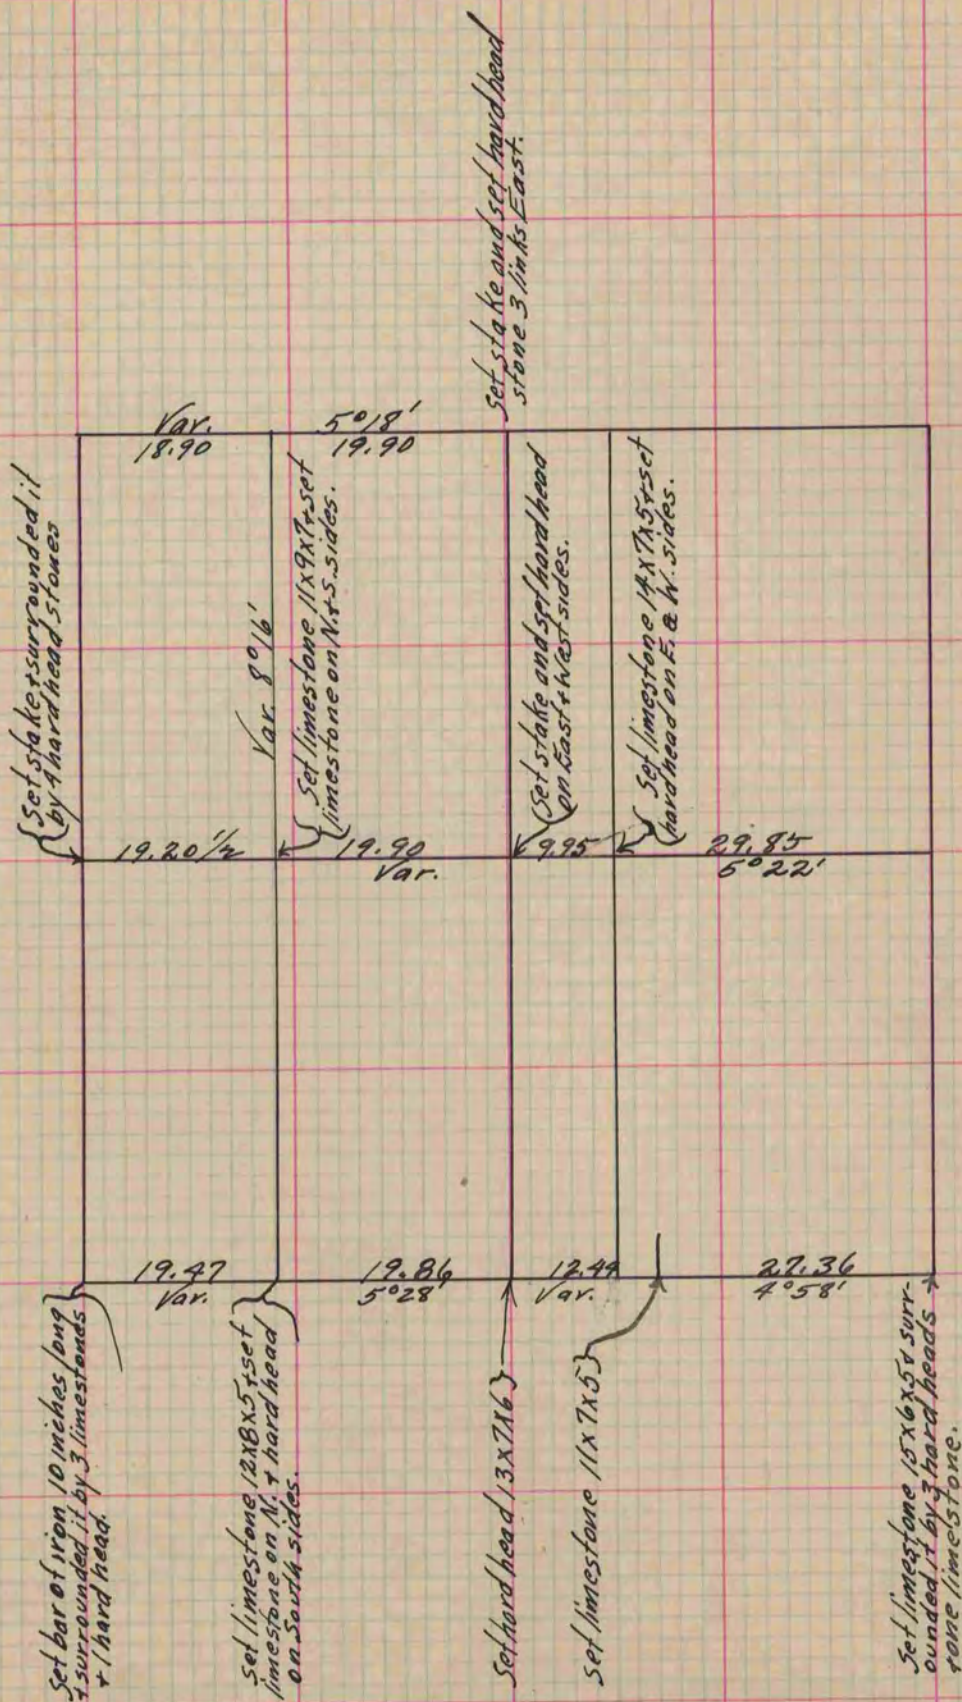 Set stake and set hard head
stone 3 links East.
Var.
18.90
5°18'
19.90
Set stake + surrounded it
by 4 hard head stones
Var. 8°16'
Set limestone 11x9x7 + set
limestone on N. + S. sides.
Set stake and set hard head
on East + West sides.
Set limestone 14x7x5 + set
hard head on E. & W. sides.
19.20 1/2
19.90
Var.
9.95
29.85
5°22'
19.47
Var.
19.86
5°28'
12.44
Var.
27.36
4°58'
Set bar of iron 10 inches long
+ surrounded it by 3 limestones
+ 1 hard head.
Set limestone 12x8x5 + set
limestone on N. + hard head
on South sides.
Set hard head 13x7x6
Set limestone 11x7x5
Set limestone 15x6x5 & surr-
ounded it by 3 hard heads
+ one limestone.